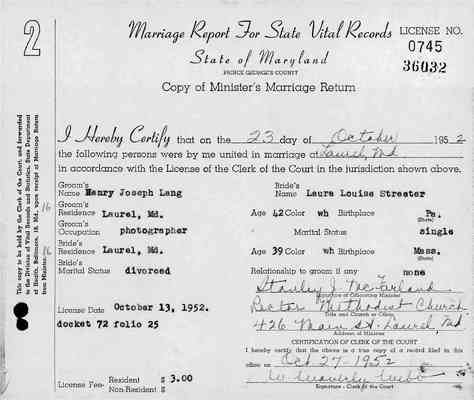 2
Marriage Report For State Vital Records
LICENSE NO.
0745
36032
State of Maryland
PRINCE GEORGE'S COUNTY
Copy of Minister's Marriage Return
This copy to be held by the Clerk of the Court, and forwarded
to the Division of Vital Records and Statistics, State Department
of Health, Baltimore, 18, Md., upon receipt of Marriage Return
from Minister.
I Hereby Certify that on the 23 day of October 1952
the following persons were by me united in marriage at Laurel, Md
in accordance with the License of the Clerk of the Court in the jurisdiction shown above.
Groom's Name Henry Joseph Lang Bride's Name Laura Louise Streeter
16 Groom's Residence Laurel, Md. Age 42 Color wh Birthplace Pa. (State)
Groom's Occupation photographer Marital Status single
16 Bride's Residence Laurel, Md. Age 39 Color wh Birthplace Mass. (State)
Bride's Marital Status divorced Relationship to groom if any none
Stanley J. McFarland
Signature of Officiating Minister
License Date October 13, 1952.
Rector Methodist Church
Title and Church or Office
docket 72 folio 25
426 Main St. Laurel, Md
Address of Minister
CERTIFICATION OF CLERK OF THE COURT
I hereby certify that the above is a true copy of a record filed in this
office on Oct 27 1952
License Fee- Resident $ 3.00
Non-Resident $
W Waverly Webb
Signature - Clerk of the Court